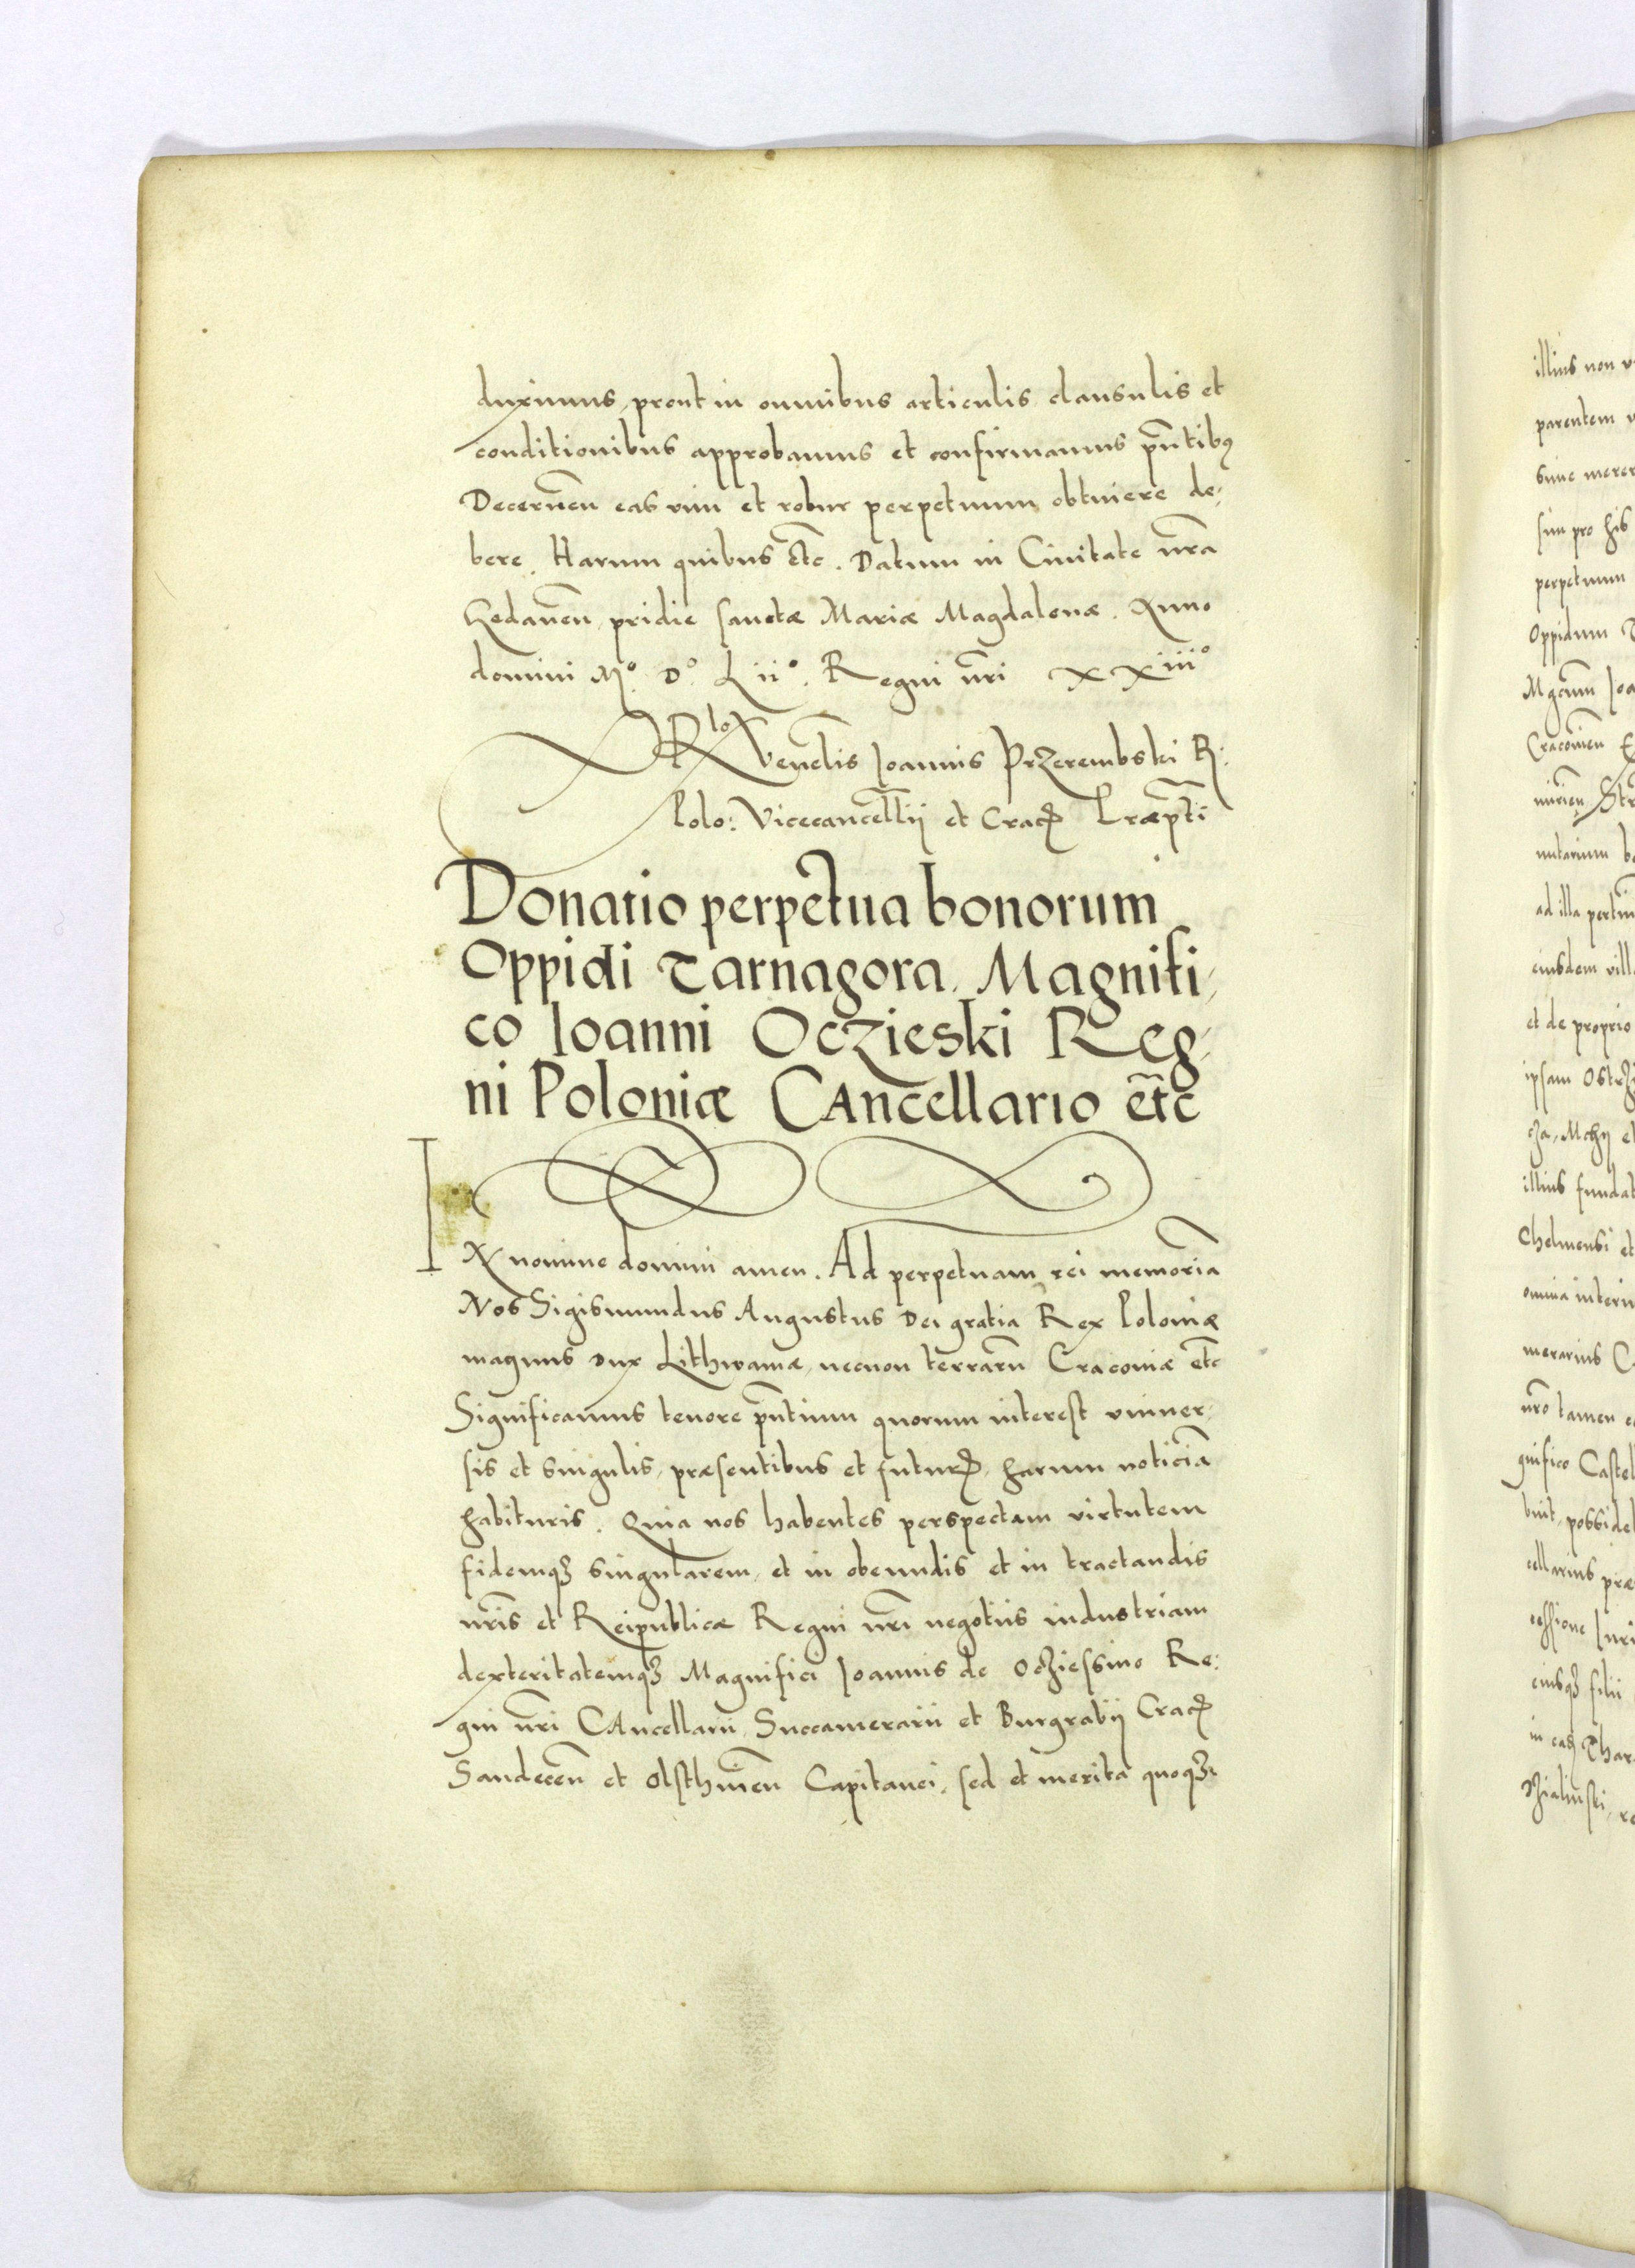 duximus, prout in omnibus articulis clausulis et
conditionibus approbamus et confirmamus pn̄tibꝯ
Decernen̄ eas vim et robur perpetuum obtinere de,
bere. Harum quibus etc̄. Datum in Ciuitate nr̄a
Gedanen̄, pridie sanctæ Mariæ Magdalenæ. Anno
domini Mº. Dº. Liiº. Regni nr̄i XXiiiº
Rlo Venel̄is Ioannis Przerembski R:
Polo: Vicecancell̄ii et Cracꝭ Præpt̄i
Donatio perpetua bonorum
Oppidi Tarnagora, Magnifi,
co Ioanni Oczieski Reg,
ni Poloniæ CAncellario et̄c
IN nomine domini amen. Ad perpetuam rei memoriā
Nos Sigismundus Augustus Dei gratia Rex Poloniæ
magnus Dux Lithwaniæ, necnon terrarū Cracoviæ et̄c
Significamus tenore pn̄tium quorum interest vniuer,
sis et singulis, præsentibus et futurꝭ, harum noticiā
habituris. Quia nos habentes perspectam virtutem
fidemqꝫ singularem, et in obeundis et in tractandis
nr̄is et Reipublicæ Regni nr̄i negotiis industriam
dexteritatemqꝫ Magnifici Ioannis de Ocziessino Re:
gni nr̄i CAncellarii, Succamerarii et Burgrabij Cracꝭ
Sandecen̄ et Olsthinen̄ Capitanei, sed et merita quoqꝫ
illius non
parentem
siue
sim pro his
perpetuum
Oppidum
Mgcūm Ioa
Cracouien̄
ad illa pertin
eiusdem vill
et de proprio
ipsam Ostrzi
illius fundat
Chelmensi et
omnia interi
merarius
nr̄o tamen
gnifico Castel
bunt, possidet
cellarius præ
cessione Iuri
eiusqꝫ filii